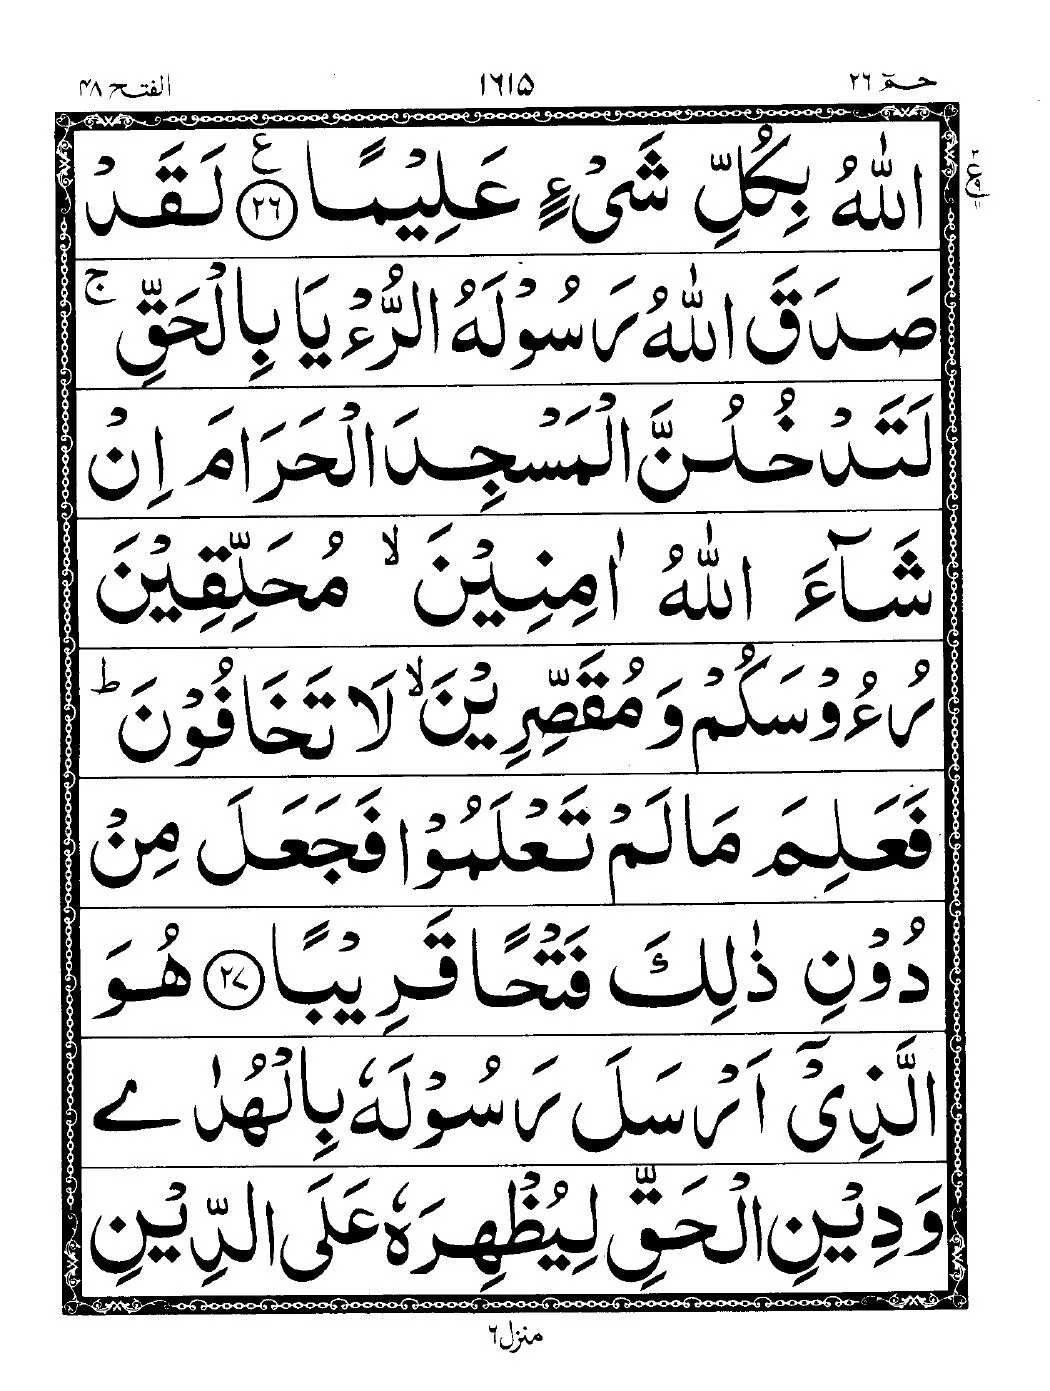 حٰمٓ ٢٦
١٦١٥
الفتح ٤٨
اللّٰهُ بِكُلِّ شَیْءٍ عَلِیْمًا ࣖ ٢٦ لَقَدْ
صَدَقَ اللّٰهُ رَسُوْلَهُ الرُّءْیَا بِالْحَقِّ ۚ
لَتَدْخُلُنَّ الْمَسْجِدَ الْحَرَامَ اِنْ
شَآءَ اللّٰهُ اٰمِنِیْنَ ۙ مُحَلِّقِیْنَ
رُءُوْسَكُمْ وَمُقَصِّرِیْنَ ۙ لَا تَخَافُوْنَ ؕ
فَعَلِمَ مَا لَمْ تَعْلَمُوْا فَجَعَلَ مِنْ
دُوْنِ ذٰلِكَ فَتْحًا قَرِیْبًا ٢٧ هُوَ
الَّذِیْۤ اَرْسَلَ رَسُوْلَهٗ بِالْهُدٰے
وَدِیْنِ الْحَقِّ لِیُظْهِرَهٗ عَلَی الدِّیْنِ
منزل ٦